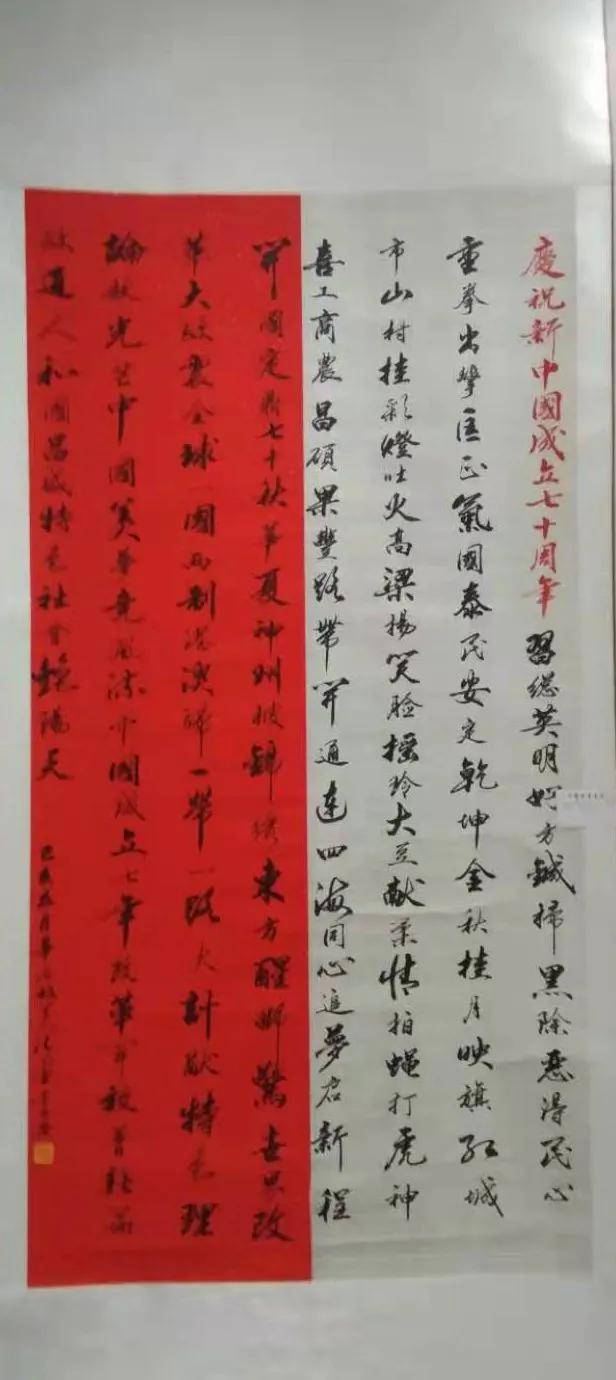 慶祝新中國成立七十周年 習總英明好方鍼掃黑除惡得民心
重拳出擊匡正氣國泰民安定乾坤金秋桂月映旗紅城
市山村挂彩燈吐火高梁揚笑臉摇玲大豆献柔情拍蝇打虎神
喜工商農昌碩果豐路帶開通連四海同心追夢启新程
開國定鼎七十秋華夏神州披錦綉東方醒獅驚世界改
革大政震全球一國两制港澳歸一帶一路大計献特色理
論放光芒中國美夢竞風流中國成立七十年改革
政通人和國昌盛特色社會艳陽天